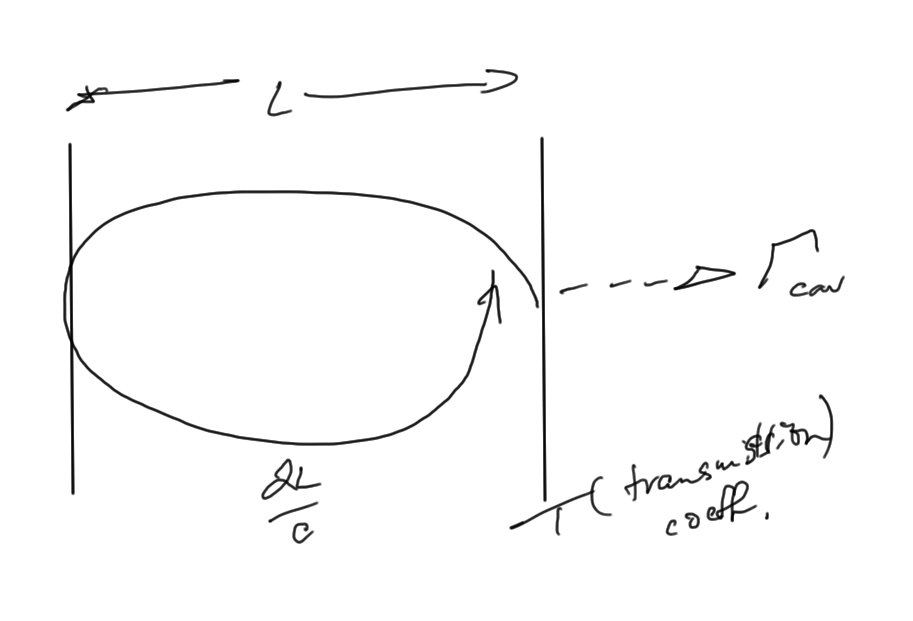 L
Γcav
2L/c
T (transmission)
coeff.